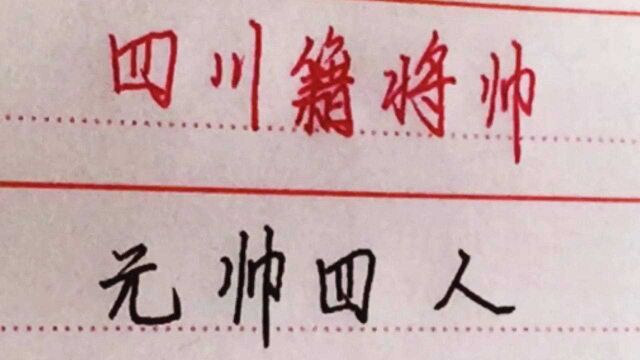 四川籍将帅
元帅四人